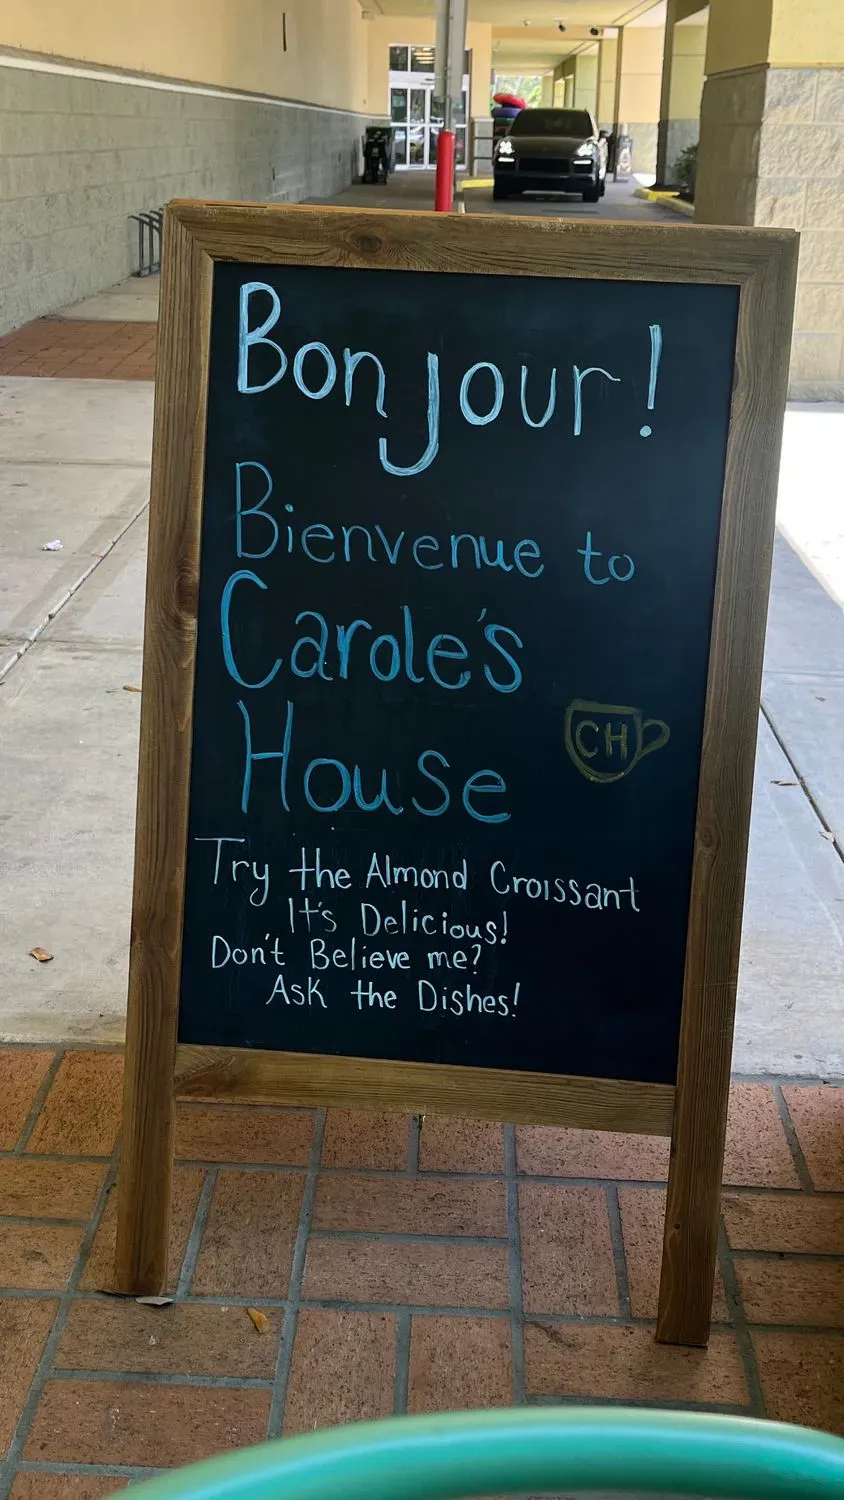 Bonjour!
Bienvenue to
Carole's
House
CH
Try the Almond Croissant
It's Delicious!
Don't Believe me?
Ask the Dishes!